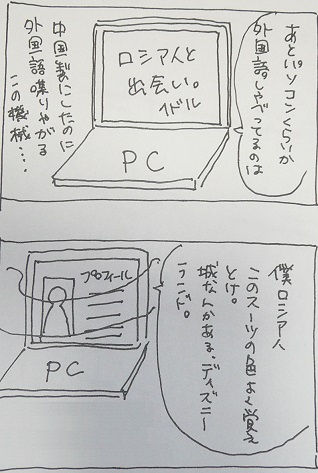 あとパソコンくらいか
外国語しゃべってるのは
ロシア人と
出会い。
イドル
PC
中国製にしたのに
外国語喋りやがる
この機械…
僕ロシアン
このスーツの色よく覚え
とけ。
城なんかある、ディズニー
ランド。
プロフィール
PC